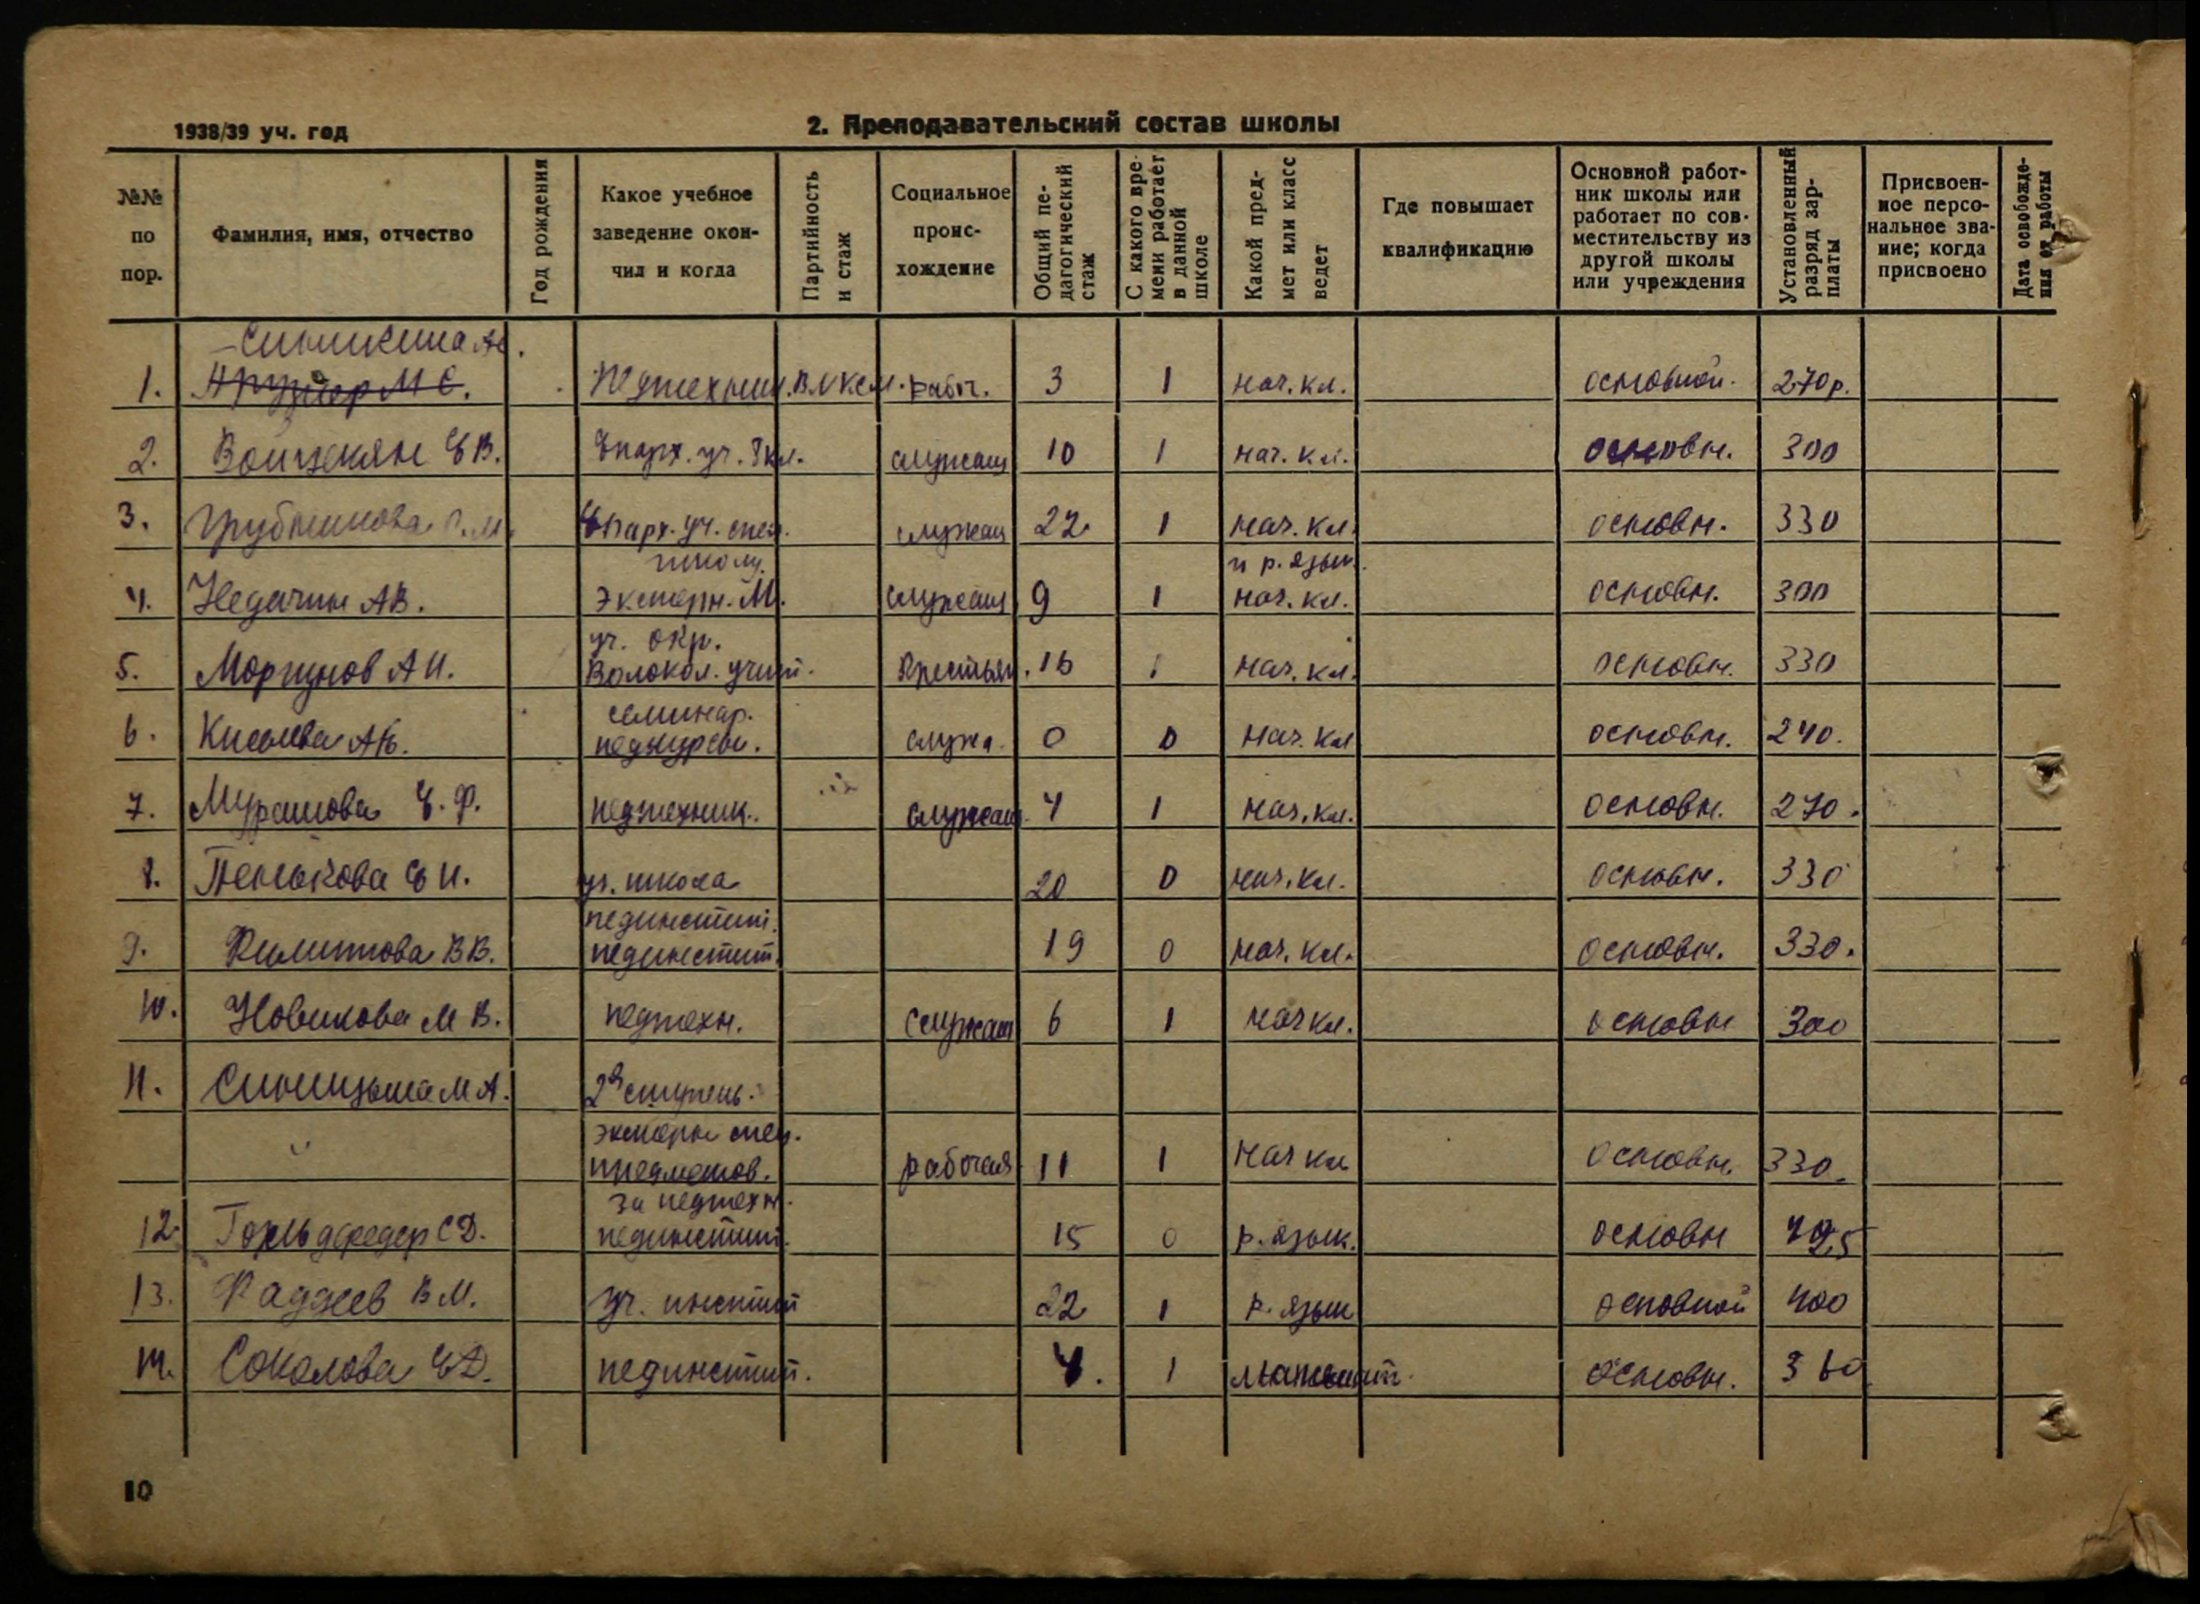 1938/39 уч. год
2. Преподавательский состав школы
№№ по пор.
Фамилия, имя, отчество
Год рождения
Какое учебное заведение окончил и когда
Партийность и стаж
Социальное происхождение
Общий педагогический стаж
С какого времени работает в данной школе
Какой предмет или класс ведет
Где повышает квалификацию
Основной работник школы или работает по совместительству из другой школы или учреждения
Установленный разряд зарплаты
Присвоенное персональное звание; когда присвоено
Дата освобождения от работы
1. М Е. Педтехник. ВЛКСМ. рабоч. 3 1 нач. кл. основной. 270 р.
2. Е В. Епарх. уч. 8 кл. служащ 10 1 нач. кл. основн. 300
3. Трубникова Епарх. уч. служащ 22 1 нач. кл. основн. 330
школу. и р. язык.
4. Недачин А В. экстерн. М. служащ 9 1 нач. кл. основн. 300
уч. окр.
5. Моргунов А И. Волокол. учит. Крестьян. 16 1 нач. кл. основн. 330
семинар.
6. педкурсы. служ. 0 0 нач. кл основн. 240.
7. Мурашова Е. Ф. педтехник. служащ. 4 1 нач. кл. основн. 270.
8. Пенькова Е И. уч. школа 20 0 нач. кл. основн. 330
пединстит.
9. Филиппова В В. пединстит. 19 0 нач. кл. основн. 330.
10. Новикова М В. педтехн. служащ 6 1 нач кл. основн 300
11. Синицына М А. 2я ступень.
экстерн
предметов. рабочая 11 1 нач кл основн. 330.
за педтехн.
12. С Д. пединстит. 15 0 р. язык. основн
13. Фаддеев В М. уч. инстит 22 1 р. язык основной 400
14. Соколова Е Д. пединстит. 4. 1 математ. основн. 360
10